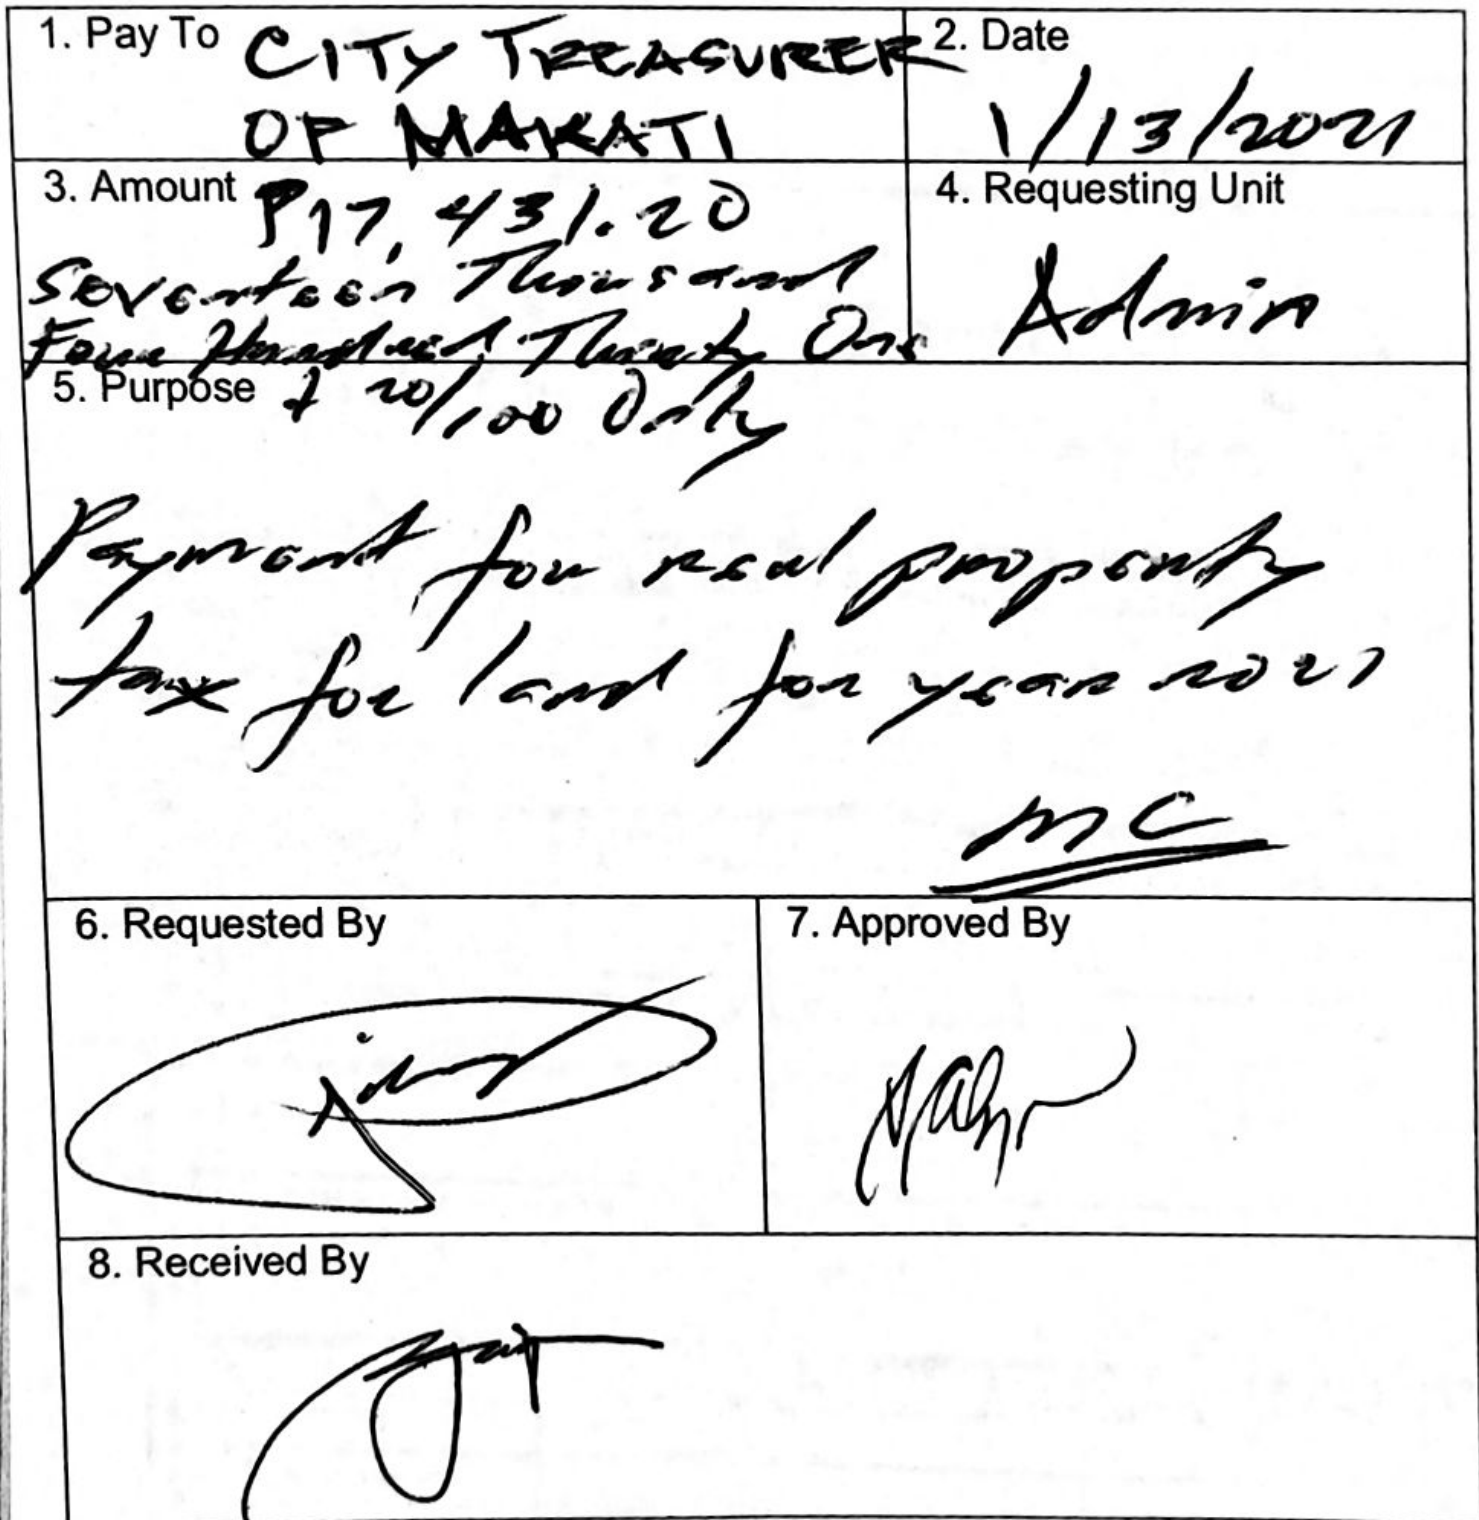 1. Pay To CITY TREASURER
OF MAKATI
2. Date
1/13/2021
3. Amount ₱17,431.20
Seventeen Thousand
Four Hundred Thirty One
& 20/100 Only
4. Requesting Unit
Admin
5. Purpose
Payment for real property
tax for land for year 2021
MC
6. Requested By
7. Approved By
8. Received By